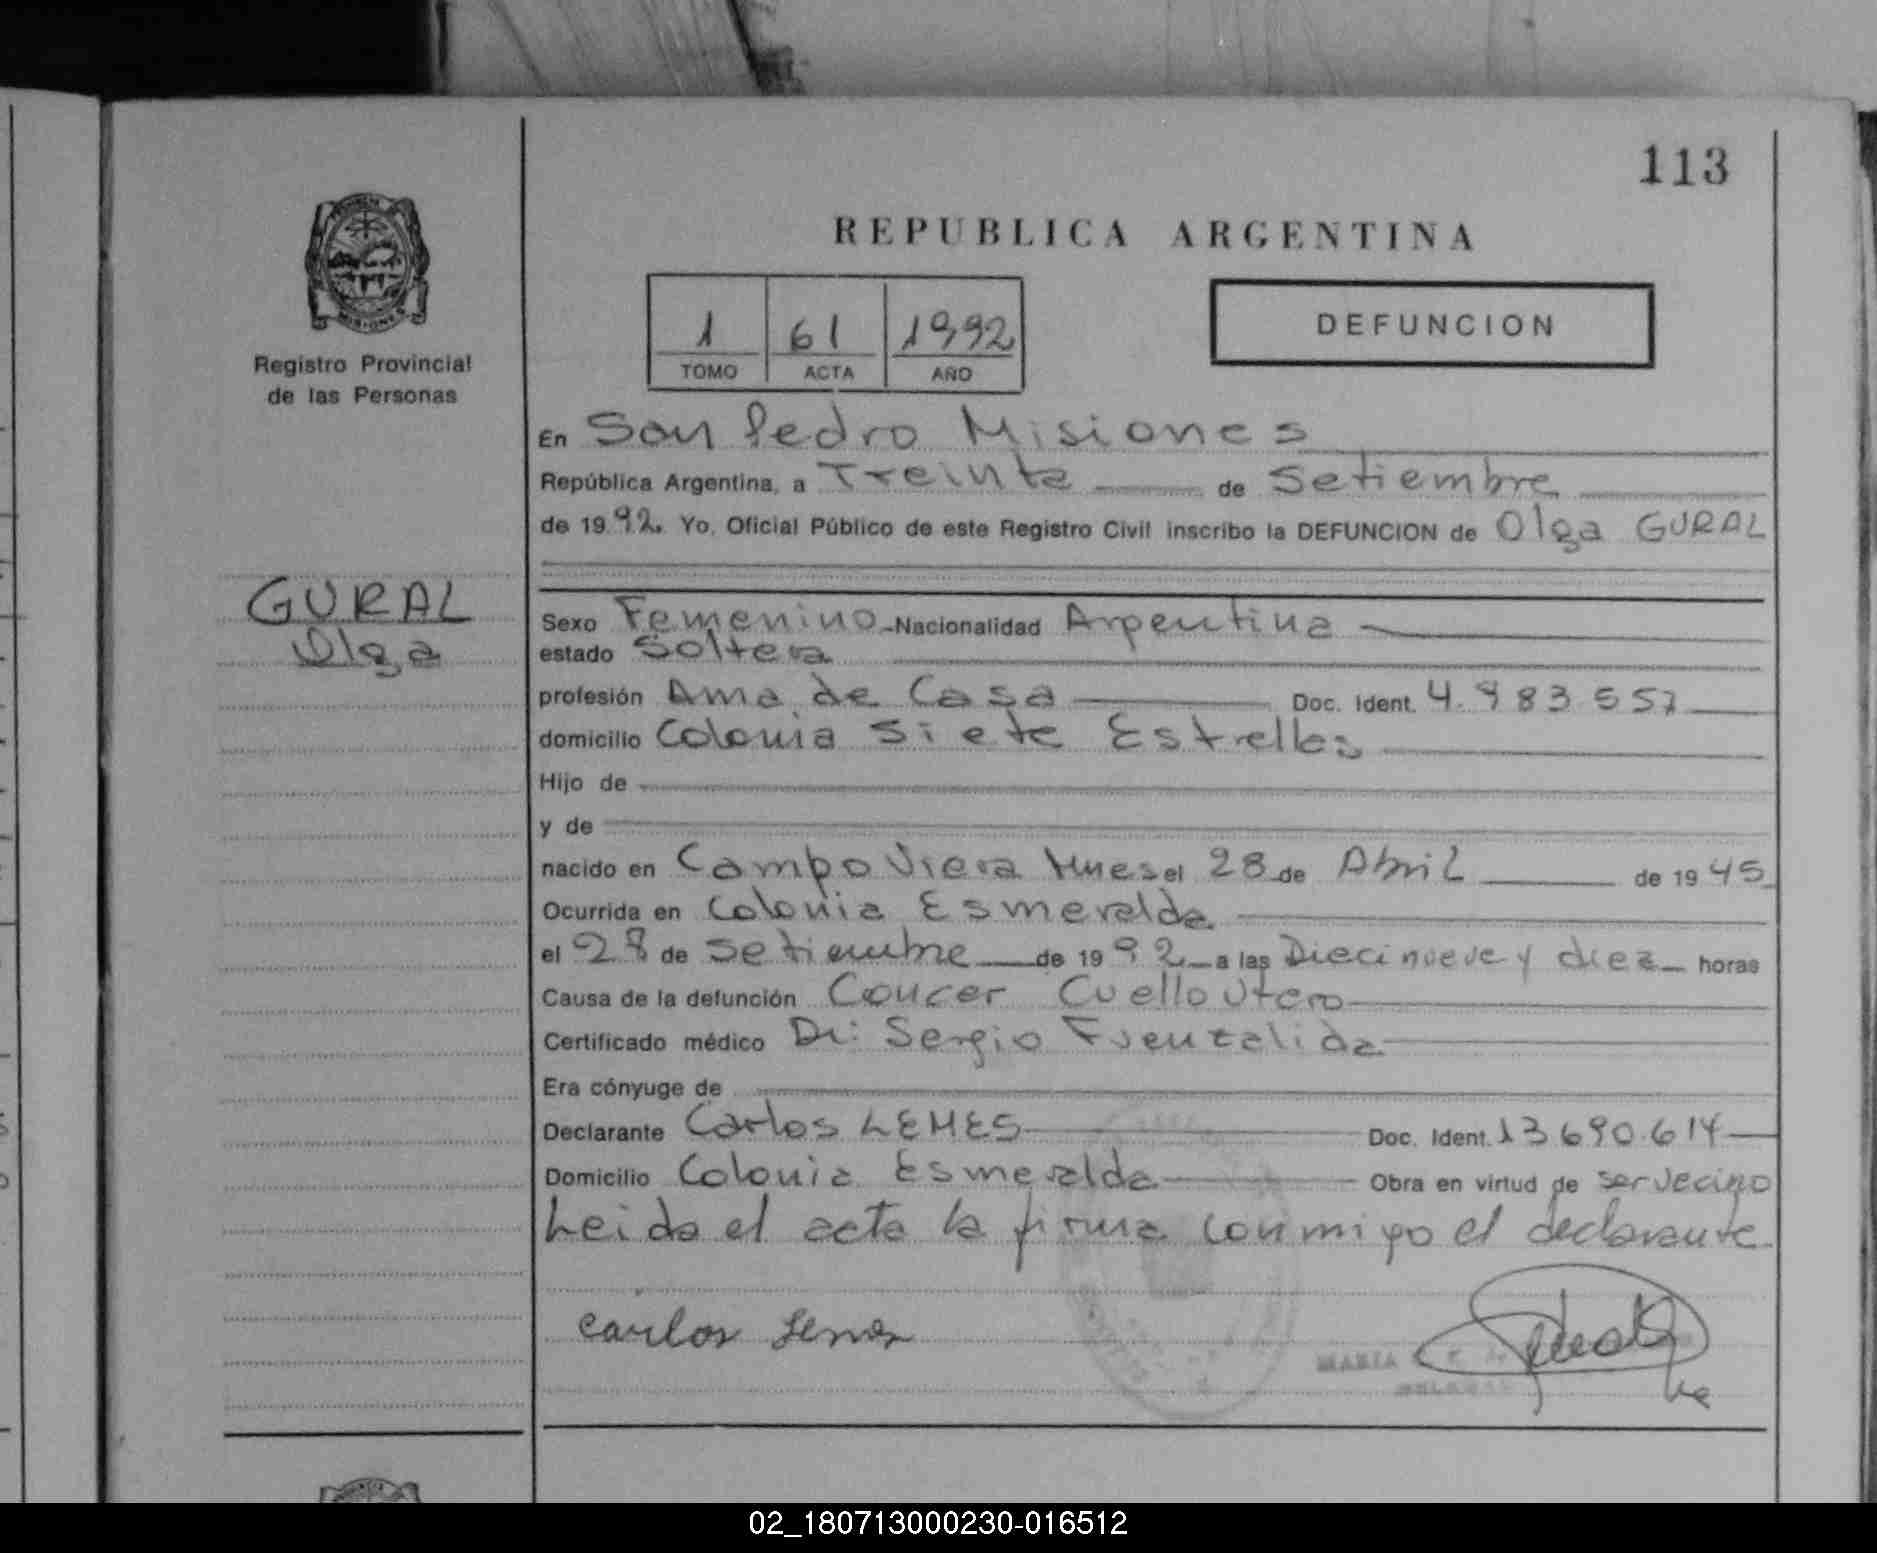 113
REPUBLICA ARGENTINA
MISIONES
Registro Provincial
de las Personas
1 61 1992
TOMO ACTA AÑO
DEFUNCION
En San Pedro Misiones
República Argentina, a Treinta de Setiembre
de 1992. Yo, Oficial Público de este Registro Civil inscribo la DEFUNCION de Olga GURAL
GURAL
Olga
Sexo Femenino Nacionalidad Argentina
estado Soltera
profesión Ama de Casa Doc. Ident. 4.983.557
domicilio Colonia Siete Estrellas
Hijo de
y de
nacido en Campo Viera Mnes el 28 de Abril de 1945
Ocurrida en Colonia Esmeralda
el 28 de Setiembre de 1992 a las Diecinueve y diez horas
Causa de la defunción Cancer Cuello Utero
Certificado médico Dr: Sergio Fuenzalida
Era cónyuge de
Declarante Carlos LEMES Doc. Ident. 13690.614
Domicilio Colonia Esmeralda Obra en virtud de ser vecino
Leida el acta la firma conmigo el declarante
Carlos Lemes
MARIA
02_180713000230-016512